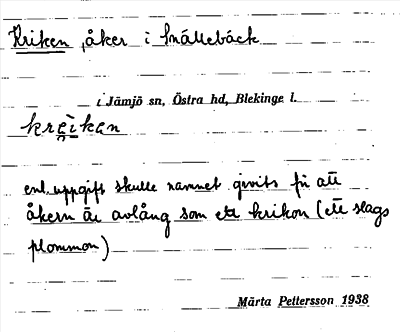 Kriken, åker i Snällebäck
i Jämjö sn, Östra hd, Blekinge l.
enl. uppgift skulle namnet givits för att
åkern är avlång som ett krikon (ett slags
plommon)
Märta Pettersson 1938